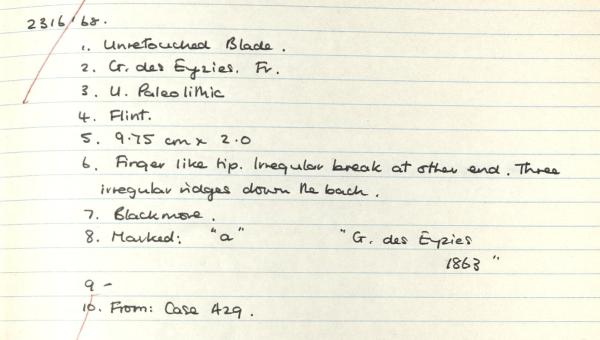 2316/68.
1. Unretouched Blade.
2. G. des Eyzies. Fr.
3. U. Paleolithic
4. Flint.
5. 9.75 cm x 2.0
6. Finger like tip. Irregular break at other end. Three
irregular ridges down the back.
7. Blackmore.
8. Marked: "a" "G. des Eyzies
1863"
9 -
10. From: Case A29.